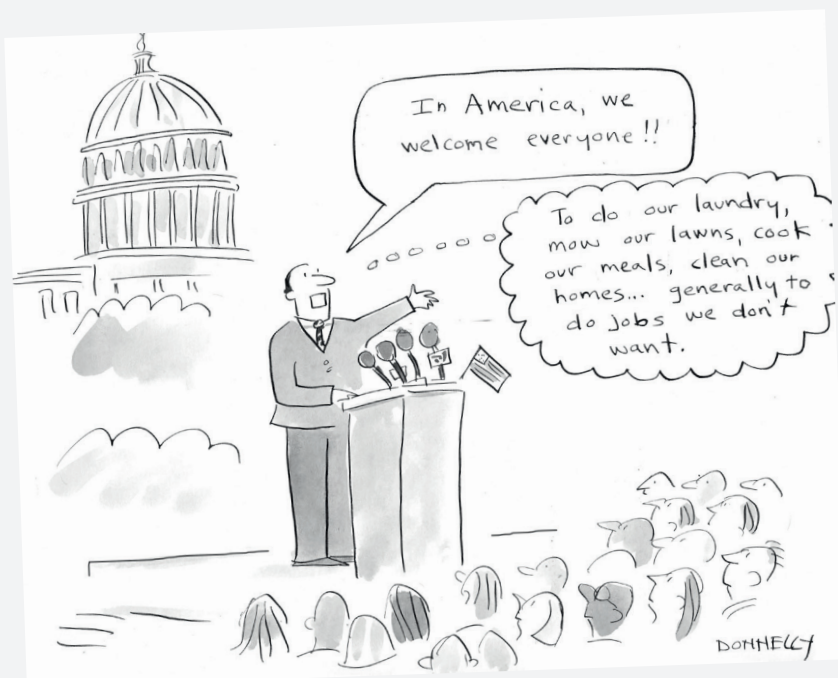 In America, we
welcome everyone!!
To do our laundry,
mow our lawns, cook
our meals, clean our
homes... generally to
do jobs we don't
want.
DONNELLY